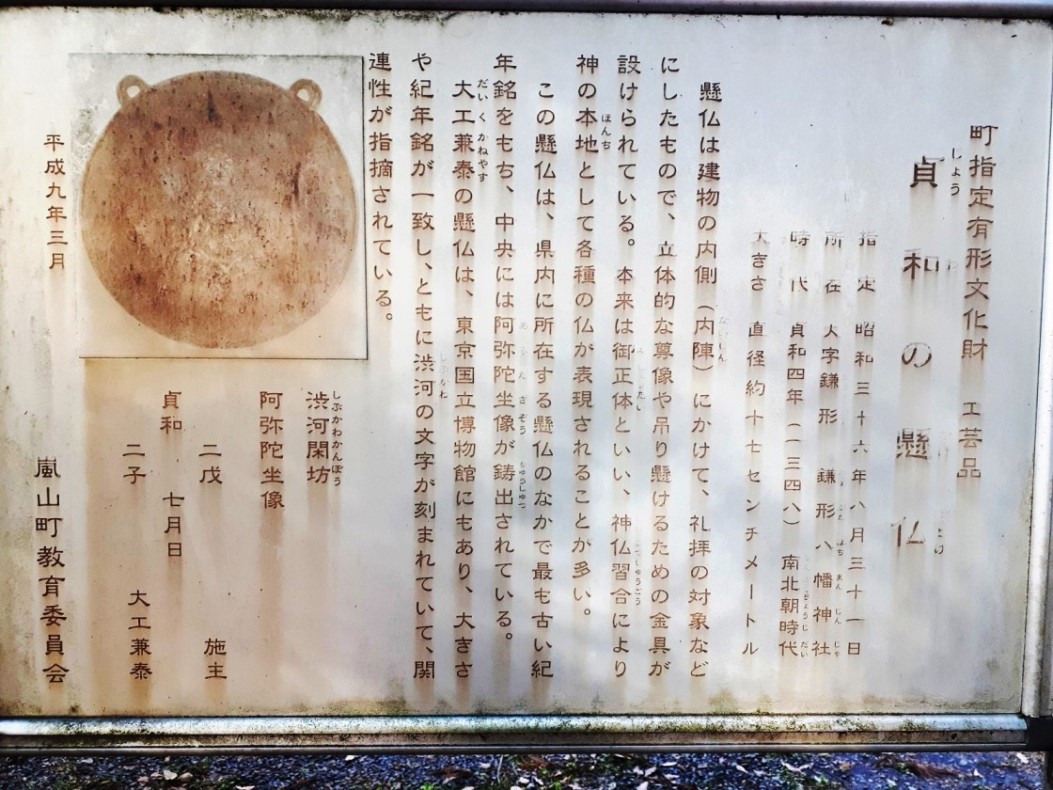 町指定有形文化財　工芸品
貞和の懸仏
指定　昭和三十六年八月三十一日
所在　大字鎌形　鎌形八幡神社
時代　貞和四年（一三四八）南北朝時代
大きさ　直径約十七センチメートル
懸仏は建物の内側（内陣）にかけて、礼拝の対象など
にしたもので、立体的な尊像や吊り懸けるための金具が
設けられている。本来は御正体といい、神仏習合により
神の本地として各種の仏が表現されることが多い。
この懸仏は、県内に所在する懸仏のなかで最も古い紀
年銘をもち、中央には阿弥陀坐像が鋳出されている。
大工兼泰の懸仏は、東京国立博物館にもあり、大きさ
や紀年銘が一致し、ともに渋河の文字が刻まれていて、関
連性が指摘されている。
渋河閑坊
阿弥陀坐像
二戊　施主
貞和　七月日
二子　大工兼泰
平成九年三月
嵐山町教育委員会